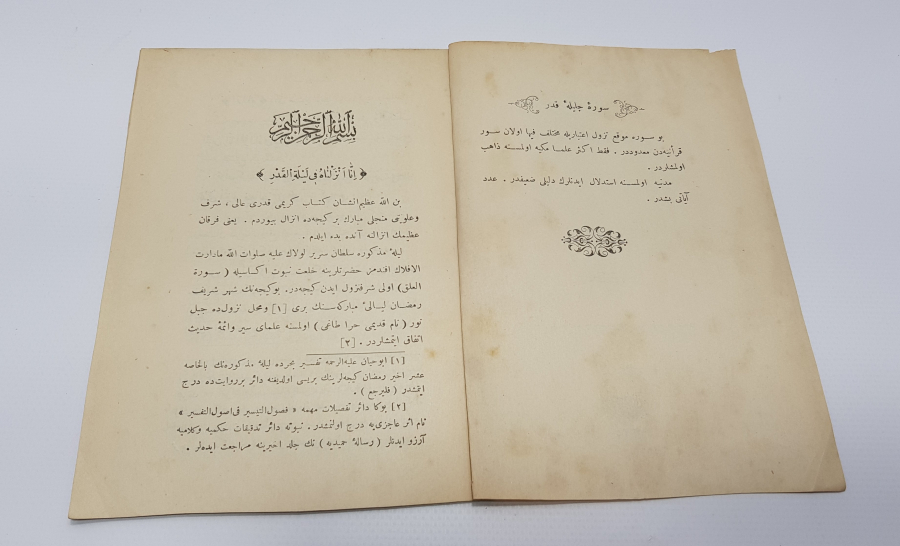 سورهٔ جلیلهٔ قدر
بو سوره موقع نزول اعتباریله مختلف فیها اولان سور
قرآنیه‌دن معدوددر . فقط اکثر علما مکیه اولمسنه ذاهب
اولمشلردر .
مدنیه اولمسنه استدلال ایدنلرك دلیلی ضعیفدر . عدد
آیاتی بشدر .
بسم الله الرحمن الرحیم
﴿ اِنَّا اَنْزَلْنَاهُ فِی لَیْلَةِ الْقَدْرِ ﴾
بن الله عظیم‌الشان کتاب کریمی قدری عالی ، شرف
وعلویتی منجلی مبارك بر کیجه‌ده انزال بیوردم . یعنی فرقان
عظیمك انزالنه آنده بدء ایلدم .
لیلهٔ مذکوره سلطان سریر لولاك علیه صلوات الله مادارت
الافلاك افندمز حضرتلرینه خلعت نبوت اکساسیله ( سورة
العلق ) اولی شرفنزول ایدن کیجه‌در. بوکیجه‌نك شهر شریف
رمضان لیالیٔ مبارکه‌سنك بری [١] ومحل نزولده جبل
نور ( نام قدیمی حرا طاغی ) اولمسنه علمای سیر وائمهٔ حدیث
اتفاق ایتمشلردر . [٢]
[١] ابوحیان علیه‌الرحمه تفسیر بحرده لیلهٔ مذکوره‌نك بالخاصه
عشر اخیر رمضان کیجه‌لرینك بریسی اولدیغنه دائر بر روایت‌ده درج
ایتمشدر ( فلیرجع ) .
[٢] بوکا دائر تفصیلات مهمه « فصول‌التیسیر فی‌اصول‌التفسیر »
نام اثر عاجزی‌یه درج اولنمشدر . نبوته دائر تدقیقات حکمیه وکلامیه
آرزو ایدنلر ( رسالهٔ حمیدیه ) نك جلد اخیرینه مراجعت ایده‌لر .